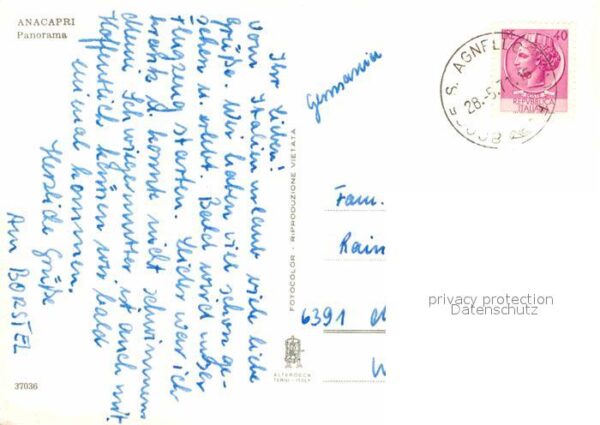 ANACAPRI
Panorama
Ihr Lieben!
Vom Italienurlaub viele liebe
Grüße. Wir haben viel schon ge-
sehen u. erlebt. Bald wird unser
Flugzeug starten. Leider war ich
krank u. konnte nicht schwimmen
Schwiegermutter ist auch mit
Hoffentlich können wir bald
einmal kommen.
Herzliche Grüße
BORSTEL
37036
FOTOCOLOR - RIPRODUZIONE VIETATA
ALTEROCCA
TERNI - ITALY
Germania
Fam.
Rain
6391
S. AGNELLO
28.-5.7
40
POSTE
REPUBBLICA
ITALIANA
privacy protection
Datenschutz